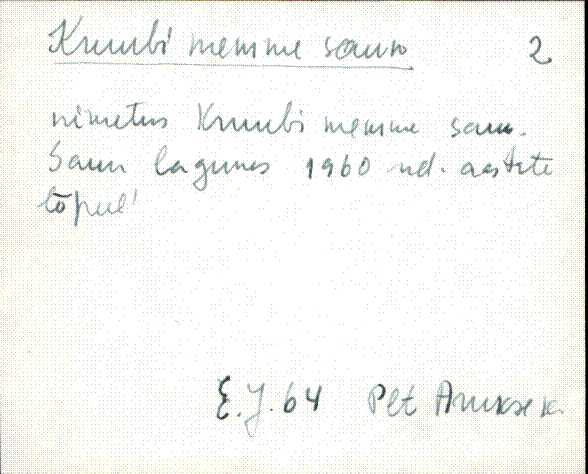 Kruubi memme saun 2
nimetus Kruubi memme saun.
Saun lagunes 1960 nd. aastate
lõpul
E.J. 64 Plt